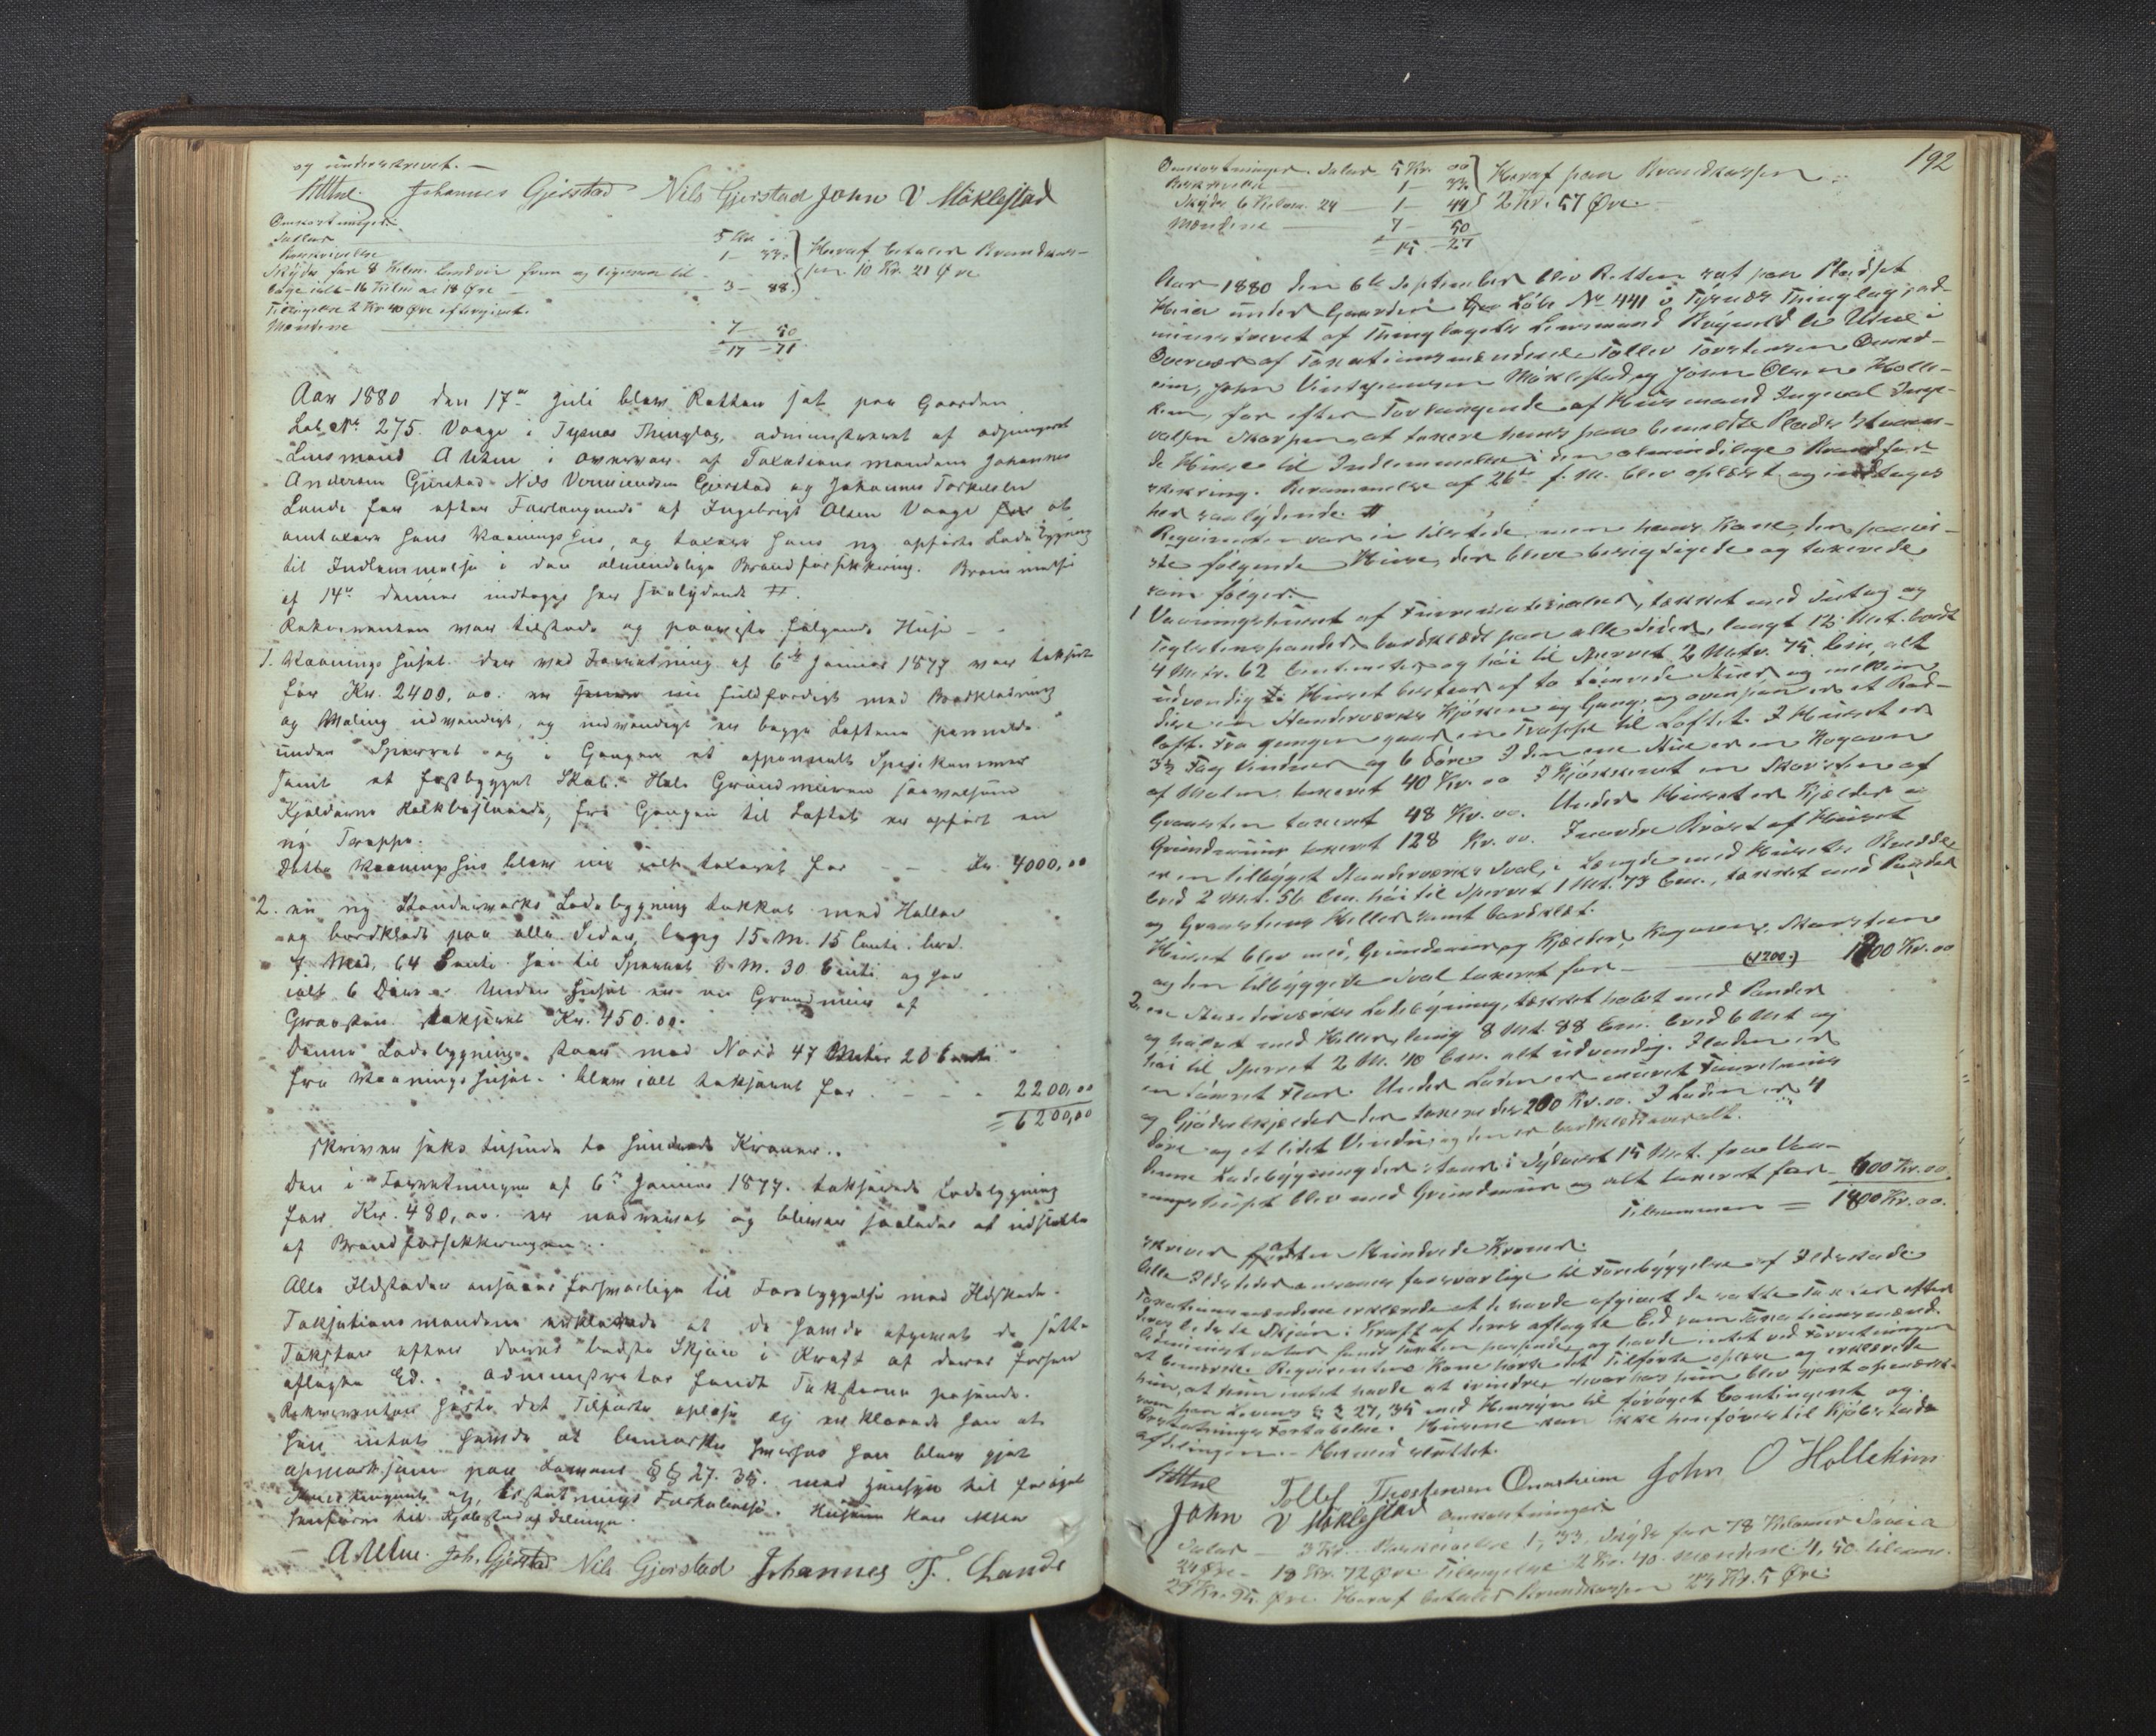 og underskrevet. —
AUtne. Johannes Gjerstad Nils Gjerstad John V Möklestad
Omkostninger:
Sallar 5 Kr "
Beskrivelse 1 - 33.
Skyds for 8 Kilm. Landvei frem og ligesaa til-
bage ialt 16 Kilm a 18 Øre 3 - 88.
Heraf betaler Brandkas-
sen 10 Kr. 21 Øre
Tilsigelse 2 Kr 40 Øre eftergivet.
Mændene 7 50
= 17 - 71
Aar 1880 den 17de Juli blev Retten sat paa Gaarden
Lab. No 275. Vaage i Tysnæs Thinglag, administreret af adjungeret
Lensmand A Utne i Overvær af Taxationsmændene Johannes
Andersen Gjerstad Nils Gjerstad og Johannes Torkelsen
Lande for efter Forlangende af Ingebrigt Olsen Vaage for at
omtaxere hans Vaaningshus, og taxere hans ny opførte Ladebygning
til Indlemmelse i den almindelige Brandforsikkring.
af 14de dennes indtages her saalydende #.
Rekvirenten var tilstede og paaviste følgende Huse —
1. Vaaningshuset. der ved Forretning af 6te Januar 1877 var taksert
for Kr. 2400,00. er nu fuldfærdigt med Bordklædning
og Maling udvendigt, og indvendigt er begge Lofterne panelede
under Sperret og i Gangen et afpanelet Spisekammer
samt et fastbygget Skab. Hele Grundmuren saavelsom
Kjelderen kalkbeslaaede, fra Gangen til Loftet er opført en
ny Trappe.
Dette Vaaningshus blev nu ialt taxeret for — — Kr. 4000,00
2. en ny Standerværks Ladebygning takket med Heller
og bordklædt paa alle Sider, lang 15 M. 15 Centi. bred
7 Met. 64 Centi høi til Sperret 3 M. 30 Centi og har
ialt 6 Døre. Under Huset er en Grundmur af
Graasten taksert Kr. 450.00.
Denne Ladebygning staar mod Nord 47 Meter 20 Centi
fra Vaaningshuset. blev ialt taksert for — — — 2200,00
= 6200,00
skriver seks tusinde to hundrede Kroner..
Den i Forretningen af 6te Januar 1877. takserede Ladebygning
for Kr. 480,00. er nedrevet og bliver saaledes at udslette
af Brandforsikkringen..
Alle Ildsteder ansaaes forsvarlige til Forebyggelse mod Ildskade.
Taksationsmændene erklærede at de havde afgivet de satte
Takster efter deres bedste Skjøn i Kraft af deres forhen
aflagte Ed. Administrator fandt Taksterne passende.
Rekvirenten hørte det Tilførte oplæse og erklærede han at
han intet havde at bemærke hvorhos han blev gjort
opmærksom paa Lovens §§ 27. 35. med Hensyn til forøget
Kontingent og Erstatnings Fortabelse. Husene kan ikke
henføres til Kjøbstadafdelingen.
AUtne. Joh. Gjerstad Nils Gjerstad Johannes T. Lande
192
Omkostninger. Salar 5 Kr. 00
Beskrivelse 1 - 33.
Skyds 6 Kilom. 24 — 1 - 44
Heraf paa Brandkassen
2 Kr. 57 Øre.
Mændene — 7 - 50
= 15 - 27
Aar 1880 den 6te September blev Retten sat paa Pladset
under Gaarden Løbe No 441 i Tysnæs Thinglag, ad-
ministreret af Thinglagets Lensmand Utne i
Overvær af Taxationsmændene Tollev Torstensen Onar-
eim, John Vintsjansen Möklestad og John Olsen Holle-
kim, for efter Forlangende af Husmand Ingeval Inge-
valsen Skarpen at taxere hans paa bemeldte Plads staaen-
de Huse til Indlemmelse i den almindelige Brandfor-
sikkring. Berammelse af 26de f. M. blev oplæst og indtages
her saalydende #
Requirenten var ei tilstede, men hans Kone, der paavi-
ste følgende Huse, der bleve besigtigede og taxerede
som følger.
1 Vaaningshuset af Furrematerialer, tækket med Sutag og
Teglstenspander, bordklædt paa alle Sider, langt 12 Met. bredt
4 Metr. 62 Centimeter og høi til Sperret 2 Metr. 75 Cm. alt
udvendig. Huset bestaar af to tømrede Stuer og mellem
disse en Standerværks Kjøkken og Gang, og ovenpaa er et Rad-
loft. Fra gangen gaar en Trappe til Loftet. I Huset er
3½ Fag Vinduer og 6 Døre I den ene Stue er en Kogeovn
af Malm taxeret 40 Kr. 00 I Kjøkkenet en Skorsten af
Graasten taxeret 48 Kr. 00. Under Huset er Kjælder og
Grundmur taxeret 128 Kr. 00. Huset
er en tilbygget Standerværks Sval, i Længde med Husets Bredde
bred 2 Met. 56 Cm. høi til Sperret 1 Met. 73 Cm., tækket med Pander
og Graastens Heller samt bordklæt.
Huset blev med Grundmur og Kjælder, Kogeovn, Skorsten
og den tilbyggede Sval taxeret for — (1200.) 1200 Kr. 00
2. en Standerværks Ladebygning, tækket halvt med Pander
og halvt med Heller, lang 8 Met. 88 Cm. bred 6 Met og
høi til Sperret 2 M. 40 Cm. alt udvendig. I Laden er
en tømret Flor. Under Laden er muret
og Gjødselkjælder der taxeredes 200 Kr. 00. I Laden er 4
Døre og et lidet Vindu, og den er bordklædt overalt.
Denne Ladebygning der staar i Sydvest 15 Met. fra Vaa-
ningshuset blev med Grundmur og alt taxeret for — 600 Kr. 00.
Tilsammen = 1800 Kr. 00.
skriver atten Hundrede Kroner.
Alle Ildsteder ansaaes forsvarlige til Forebyggelse af Ildskade.
Taxationsmændene erklærede at de havde afgivet de satte Taxter efter
deres bedste Skjøn i Kraft af deres aflagte Ed som Taxationsmænd.
Administrator fandt Taxten passende, og havde intet ved Forretningen
at bemærke. Requirentens Kone hørte det Tilførte oplæse og erklærede
hun, at hun intet havde at erindre, hvorhos hun blev gjort opmærk-
som paa Lovens §§ 27, 35 med Hensyn til forøget Contingent og
Erstatnings Fortabelse. Husene kan ikke henføres til Kjøbstads
afdelingen. — Hermed sluttet.
AUtne Tollef Thorstensen Onarheim John O Hollekim
John V Möklestad Omkostninger
Salar — 3 Kr. Beskrivelse 1,33. Skyds for 78 Kilometer Søvei a
24 Øre — 18 Kr. 72 Øre Tilsigelse 2 Kr. 40. Mændene 4,50. tilsam.
29 Kr. 95. Øre. Heraf betaler Brandkassen 23 Kr. 5 Øre.